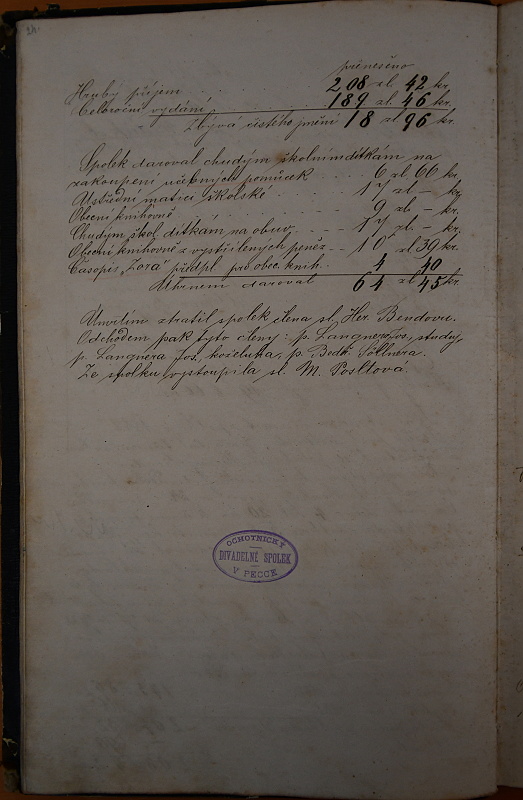 24.
přenešeno
Hrubý příjem . . . 208 zl. 42 kr.
Celoroční vydání . . . 189 zl. 46 kr.
Zbývá čistého jmění 18 zl 96 kr.
Spolek daroval chudým školním dítkám na
zakoupení učebných pomůcek . . . 6 zl. 66 kr.
Ústřední matici školské . . . 17 zl – kr.
Obecní knihovně . . . 9 zl. – kr.
Chudým škol. dítkám na obuv . . . 17 zl. – kr.
Obecní knihovně z vystřílených peněz . . 10 zl 39 kr.
Časopis „Zora" předpl. pro obec. knih. . 4 40
Úhrnem daroval 64 zl 45 kr.
Úmrtím ztratil spolek člena sl. Her. Bendovu.
Odchodem pak tyto členy: p. Langnera Jos., studuj.
p. Langnera Jos. koželuha, p. Bedř. Söllnera.
Ze spolku vystoupila sl. M. Posltova.
OCHOTNICKÝ
DIVADELNÉ SPOLEK
V PECCE